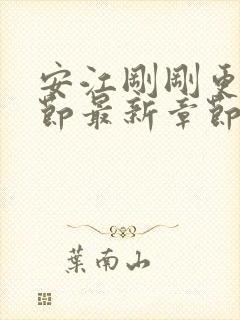 安江剛剛更
節最新章節
葉南山